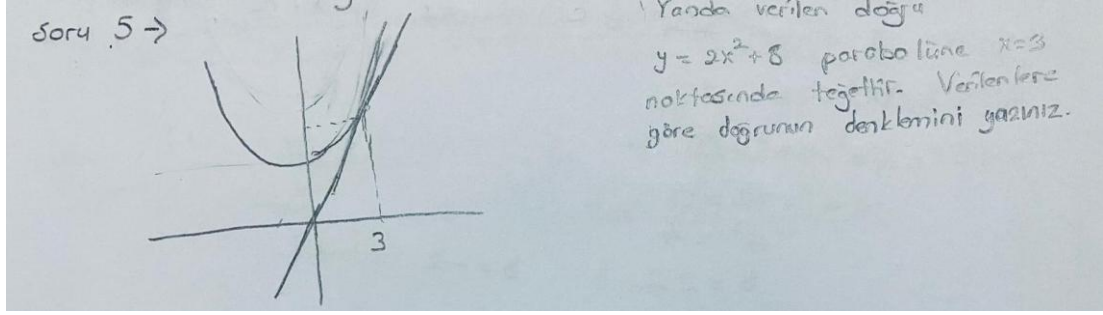 Soru 5 →
Yanda verilen doğru
y = 2x²+8 parabolüne x=3
noktasında teğettir. Verilenlere
göre doğrunun denklemini yazınız.
3